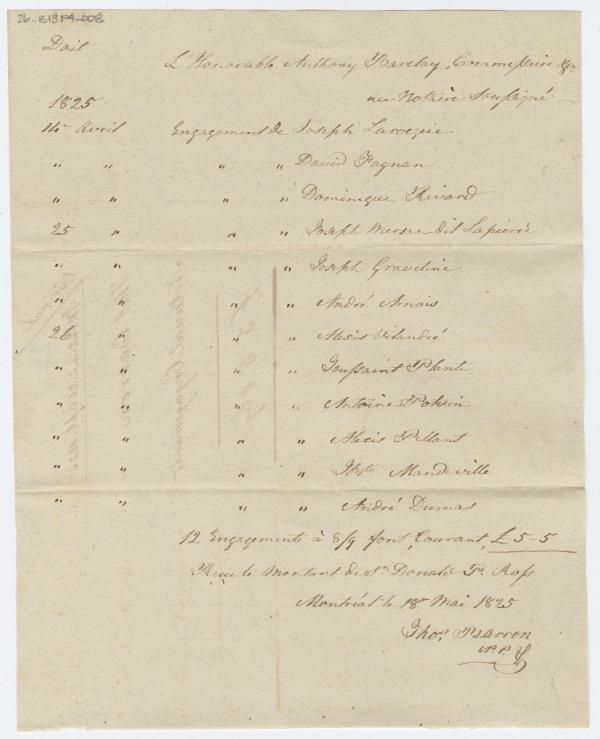 26-B13F4-008
Doit
L'Honorable Anthony Barclay, Commissaire &c.
1825 au Notaire Soussigné
14 Avril Engagement de Joseph Larocque
" " " " David Fagnan
" " " " Dominique Rivard
25 " " " Joseph Mersan dit Lapierre
" " " " Joseph Graveline
" " " " André Arnois
26 " " " Alexis Vilandré
" " " " Toussaint Plante
" " " " Antoine Potvin
" " " " Alexis Pillant
" " " " Bte Mandeville
" " " " André Dumas
12 Engagements à 8/9 font, Courant, £5-5
Reçu le Montant de Sr. Donald Ross
Montréal le 18 Mai 1825
Thos. Barron
N.P.